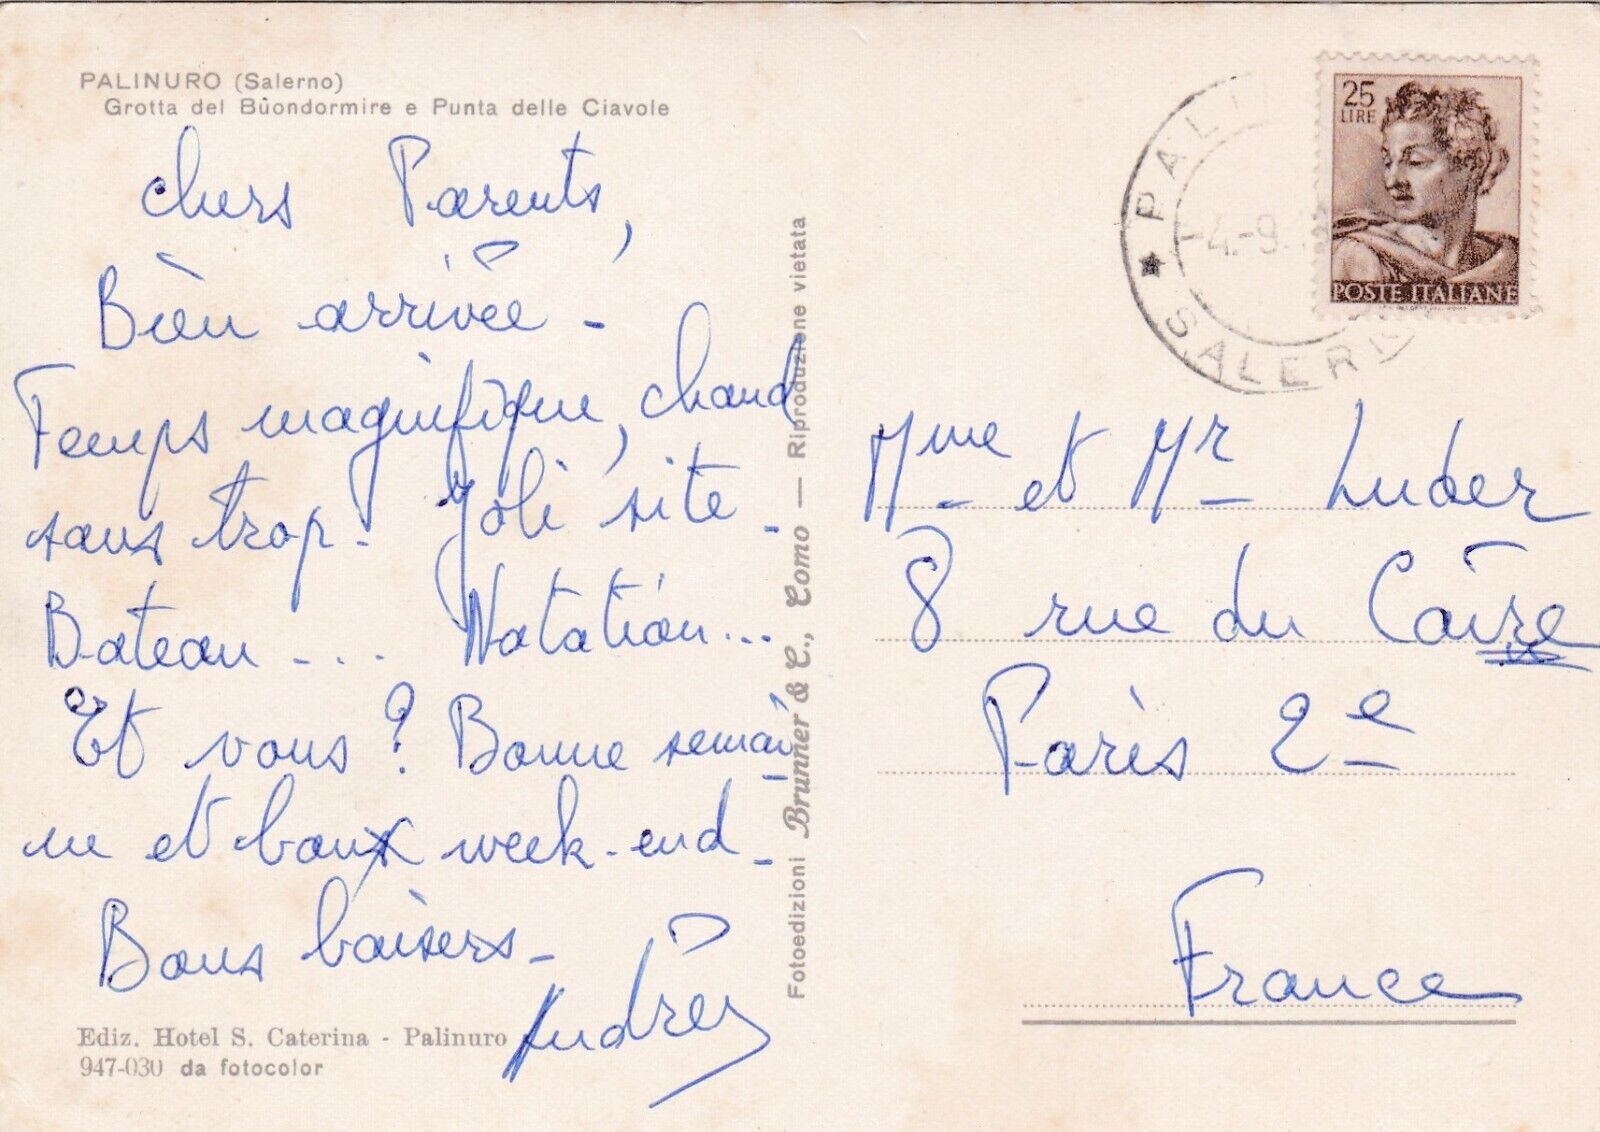 PALINURO (Salerno)
Grotta del Bùondormire e Punta delle Ciavole
Chers Parents,
Bien arrivée -
Temps magnifique, chaud
sans trop. Joli site -
Bateau - ... Natation...
Et vous ? Bonne semai
ne et bon week-end -
Bons baisers -
Ediz. Hotel S. Caterina - Palinuro
947-030 da fotocolor
Fotoedizioni Brunner & C., Como — Riproduzione vietata
PALI
-4.-9.
★ SALER
25
LIRE
POSTE ITALIANE
Mme et Mr Luder
8 rue du Caire
Paris 2e
France